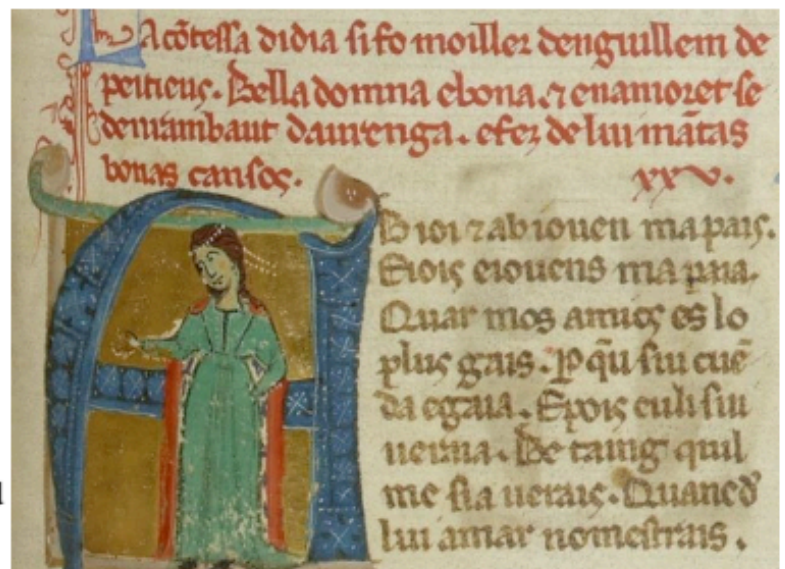 La cõtessa didia si fo moiller denguillem de
peitieus. Bella domna ebona. ⁊ enamoret se
denrambaut daurenga. efez de lui mãtas
bonas cansos.
xxv.
AB ioi ⁊ab iouen mapais.
Eiois eiouens mapaia.
Quar mos amics es lo
plus gais. P q̃u sui cuẽ
da egaia. Epois euli sui
ueraia. Be taing quil
me sia uerais. Quanc d̾
lui amar nomestrais.